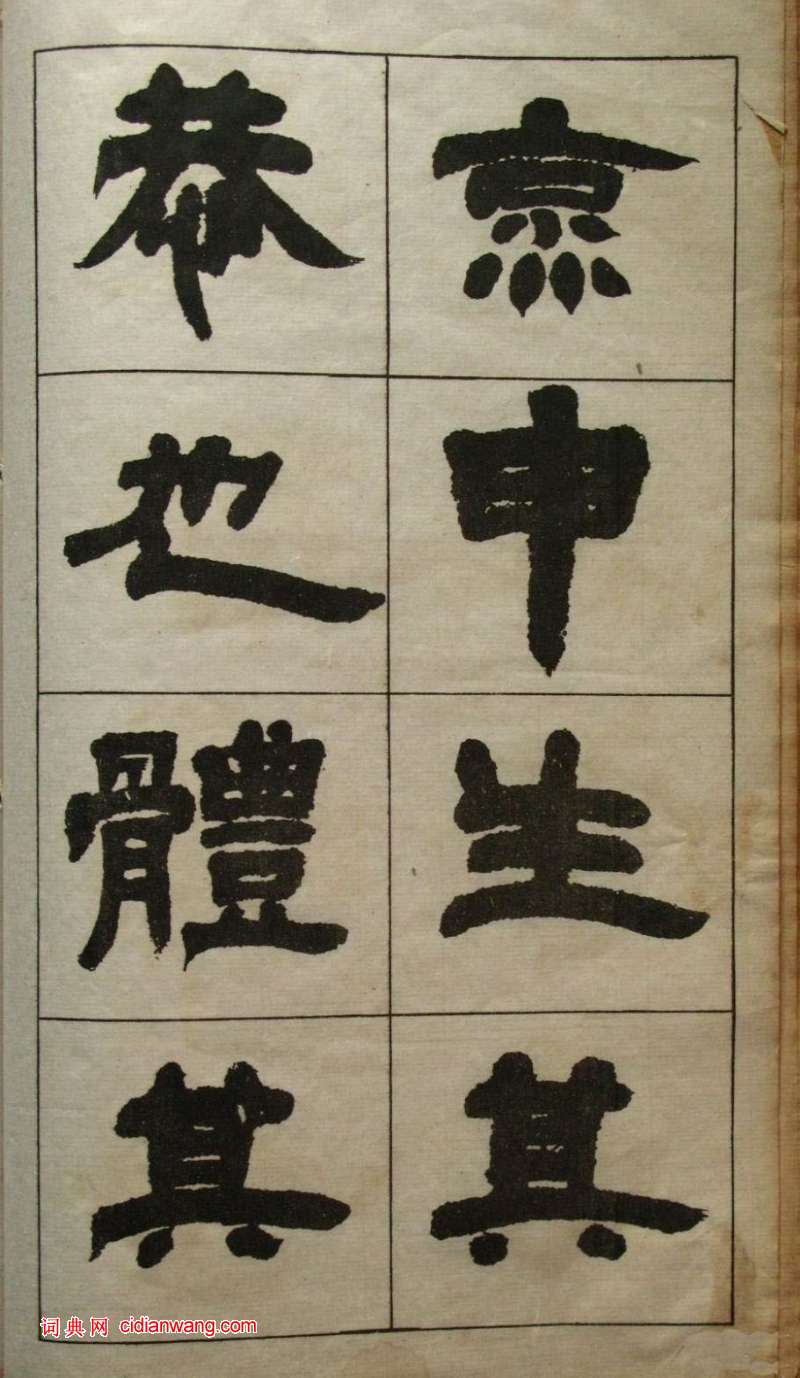 烹申生其
恭也體其
词典网 cidianwang.com